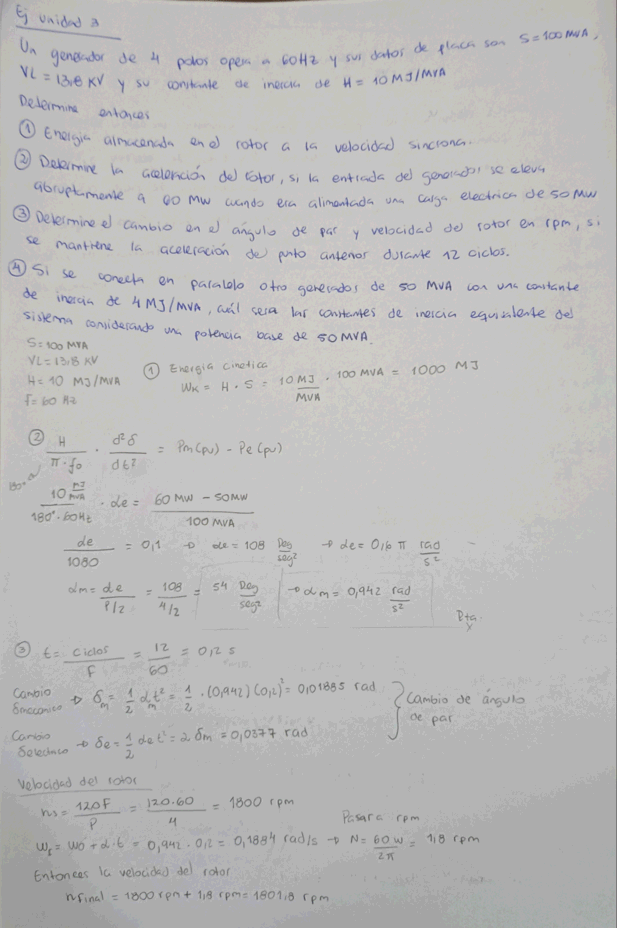 Ej unidad 3
Un generador de 4 polos opera a 60Hz y sus datos de placa son S=100 MVA,
VL = 13,8 KV y su constante de inercia de H = 10 MJ/MVA
Determine entonces
① Energia almacenada en el rotor a la velocidad sincrona.
② Determine la aceleración del rotor, si la entrada del generador se eleva
abruptamente a 60 MW cuando era alimentada una carga electrica de 50 MW
③ Determine el cambio en el ángulo de par y velocidad del rotor en rpm, si
se mantiene la aceleración de punto anterior durante 12 ciclos.
④ Si se conecta en paralelo otro generador de 50 MVA con una constante
de inercia de 4 MJ/MVA, cuál sera las constantes de inercia equivalente del
sistema considerando una potencia base de 50 MVA.
S = 100 MVA
VL = 13,8 KV
H = 10 MJ/MVA
f = 60 Hz
① Energia cinetica
Wk = H · S = 10 MJ/MVA · 100 MVA = 1000 MJ
② H/π·f0 · d²δ/dt² = Pm(pu) - Pe(pu)
180°
10 MJ/MVA / 180°·60Hz · αe = 60 MW - 50 MW / 100 MVA
αe/1080 = 0,1 → αe = 108 Deg/seg² → αe = 0,6 π rad/s²
αm = αe/P/2 = 108/4/2 = 54 Deg/seg² → αm = 0,942 rad/s²
Rta
③ t = ciclos/f = 12/60 = 0,2 s
Cambio δmecanico → δm = 1/2 αm t² = 1/2 · (0,942)(0,2)² = 0,01885 rad
Cambio δelectrico → δe = 1/2 αe t² = 2 δm = 0,0377 rad
Cambio de ángulo
de par
Velocidad del rotor
ns = 120F/P = 120·60/4 = 1800 rpm
Pasar a rpm
Wf = W0 + α·t = 0,942 · 0,2 = 0,1884 rad/s → N = 60 W/2π = 1,8 rpm
Entonces la velocidad del rotor
nfinal = 1800 rpm + 1,8 rpm = 1801,8 rpm